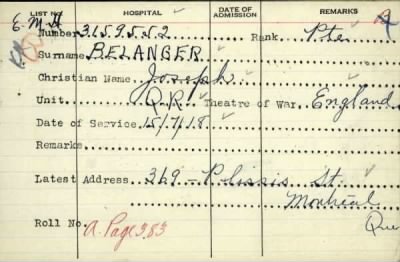 LIST NO. HOSPITAL DATE OF ADMISSION REMARKS
E.M.A
Number 3159552 Rank Pte
Surname BELANGER
Christian Name Joseph
Unit Q.R. Theatre of War England
Date of Service 15/7/18
Remarks
Latest Address 369 - St.
Montreal
Que
Roll No. A. Page 383